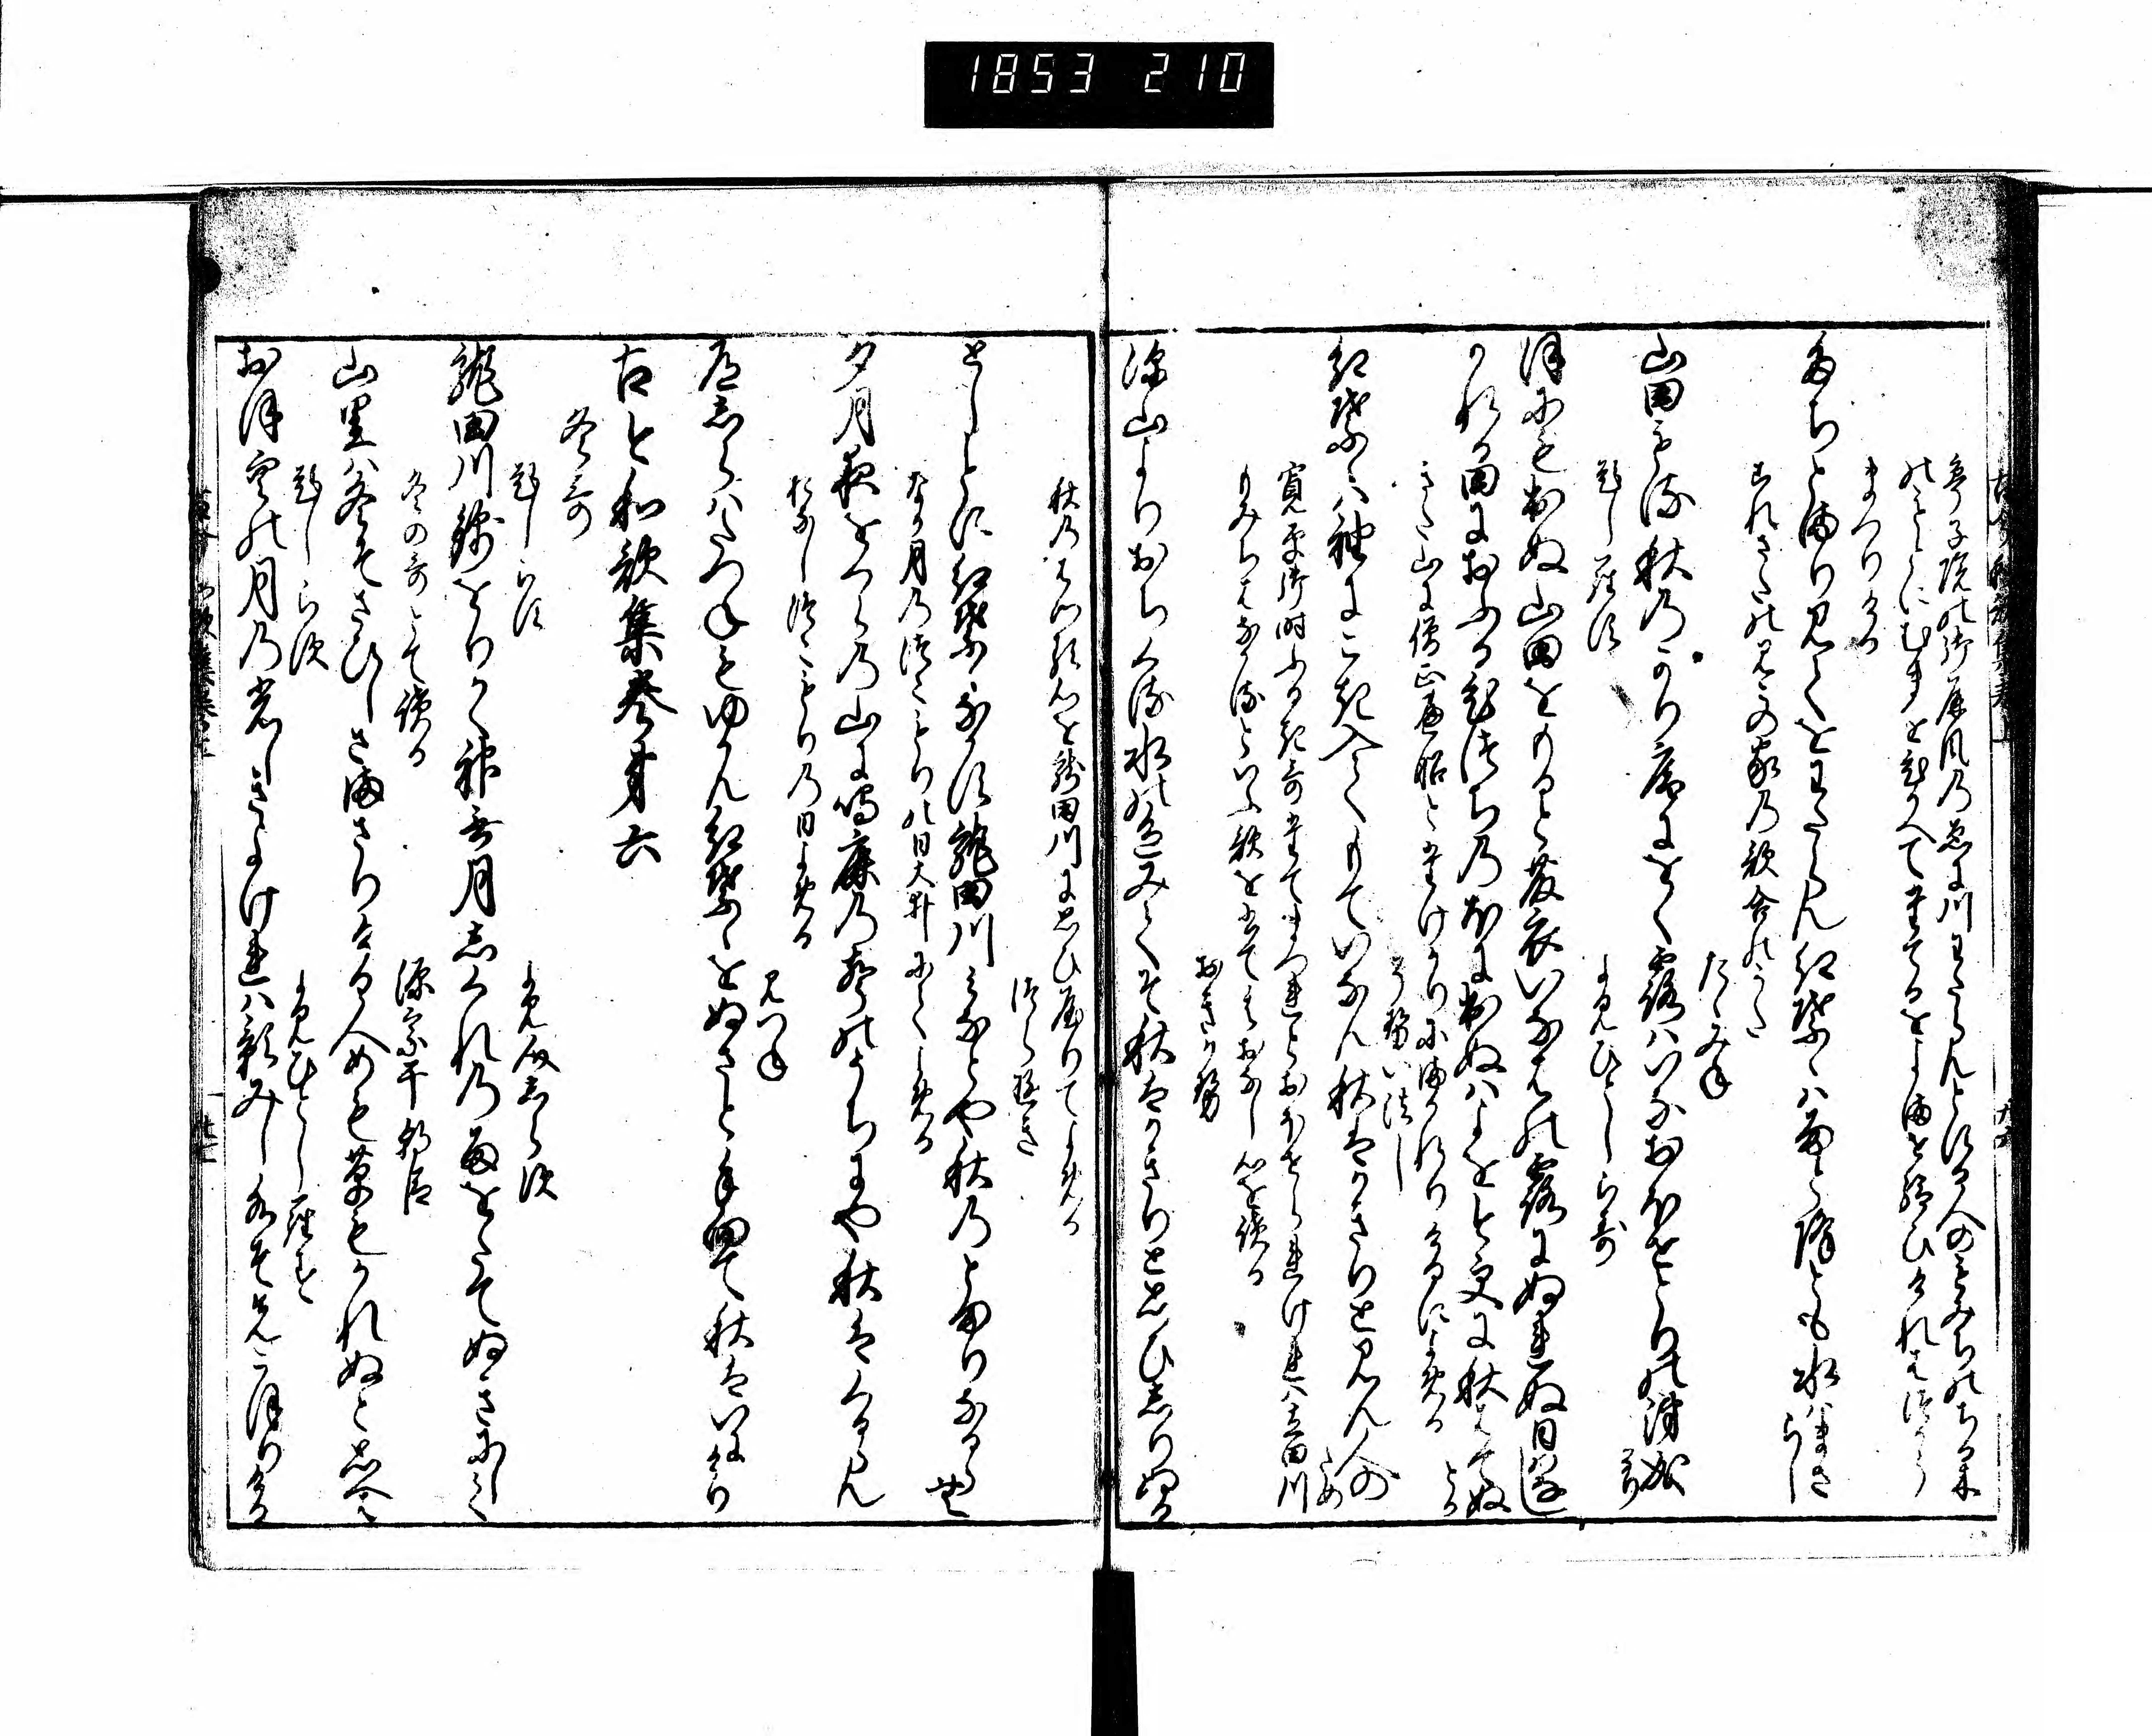 1853 210
亭子院の御屏風のゑに川わたらんとする人のもみちのちる木
のもとにむまをひかへてたてるをよませ給ひけれはつかう
まつりける
たちとまり見てをわたらん紅葉ゝは雨と降とも水はまさらし
これさたのみこの家の歌合のうた
たゝみね
山田もる秋のかりほにをく露はいなおほせとりの涙成けり
題しらす
よみ人しらす
ほにも出ぬ山田をもると藤衣いなはの露にぬれぬ日そなき
かれる田におふるひつちのほに出ぬはよを今更に秋はてぬとか
きた山に僧正遍昭とたけかりにまかれりけるによめる
そせい法し
紅葉ゝは袖にこき入てもていなん秋はかきりと見ん人のため
寛平御時ふるき哥たてまつれとおほせられけれは立田川
もみちはなかるといふ歌をかきてそのおなし心を読る
おきかせ
深山よりおちくる水の色みてそ秋はかきりと思ひしりぬる
秋のはつる心を龍田川に思ひやりてよめる
つらゆき
としことに紅葉ゝなかす龍田川みなとや秋のとまりなるらむ
なか月のつこもりの日大井にてよめる
夕月夜をくらの山に鳴鹿の声のうちにや秋はくるらん
おなしつこもりの日よめる
みつね
道しらはたつねもゆかん紅葉ゝをぬさと手向て秋はいにけり
古今和歌集巻第六
冬哥
題しらす
よみ人しらす
龍田川錦をりかく神無月しくれの雨をたてぬきにして
冬の哥とて読る
源宗于朝臣
山里は冬そさひしさまさりける人めも草もかれぬと思へは
題しらす
よみ人しらす
おほ空の月の光しきよけれは影みし水そまつこほりける